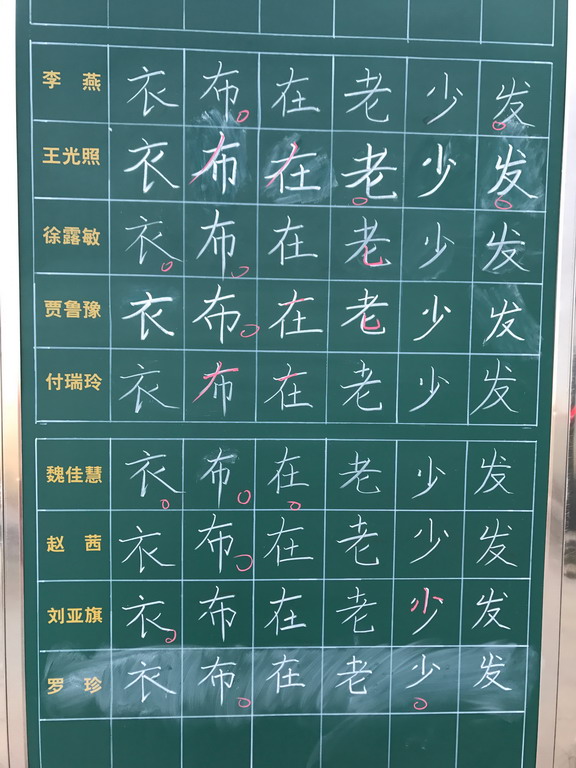 李燕 衣 布 在 老 少 发
王光照 衣 布 在 老 少 发
徐露敏 衣 布 在 老 少 发
贾鲁豫 衣 布 在 老 少 发
付瑞玲 衣 布 在 老 少 发
魏佳慧 衣 布 在 老 少 发
赵茜 衣 布 在 老 少 发
刘亚旗 衣 布 在 老 少 发
罗珍 衣 布 在 老 少 发